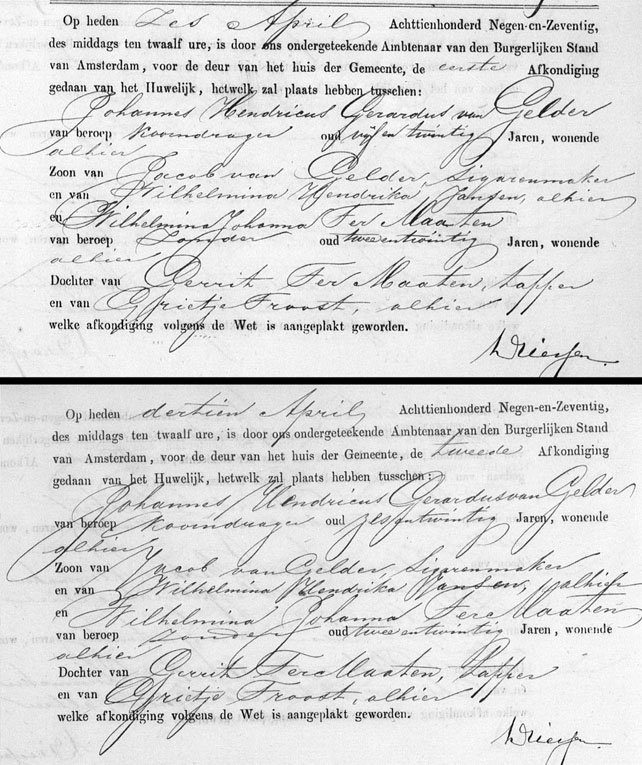 Op heden Zes April Achttienhonderd Negen-en-Zeventig,
des middags ten twaalf ure, is door ons ondergeteekende Ambtenaar van den Burgerlijken Stand
van Amsterdam, voor de deur van het huis der Gemeente, de eerste Afkondiging
gedaan van het Huwelijk, hetwelk zal plaats hebben tusschen:
Johannes Hendricus Gerardus van Gelder
van beroep Koorndrager oud vijf en twintig Jaren, wonende
alhier
Zoon van Jacob van Gelder, Sigarenmaker
en van Wilhelmina Hendrika Jansen, alhier
en Wilhelmina Johanna Ter Maaten
van beroep Zonder oud twee en twintig Jaren, wonende
alhier
Dochter van Gerrit Ter Maaten, tapper
en van Grietje Froost, alhier
welke afkondiging volgens de Wet is aangeplakt geworden.
Op heden dertien April Achttienhonderd Negen-en-Zeventig,
des middags ten twaalf ure, is door ons ondergeteekende Ambtenaar van den Burgerlijken Stand
van Amsterdam, voor de deur van het huis der Gemeente, de tweede Afkondiging
gedaan van het Huwelijk, hetwelk zal plaats hebben tusschen:
Johannes Hendricus Gerardus van Gelder
van beroep Koorndrager oud zes en twintig Jaren, wonende
alhier
Zoon van Jacob van Gelder, Sigarenmaker
en van Wilhelmina Hendrika Jansen, alhier
en Wilhelmina Johanna Ter Maaten
van beroep Zonder oud twee en twintig Jaren, wonende
alhier
Dochter van Gerrit Ter Maaten, tapper
en van Grietje Froost, alhier
welke afkondiging volgens de Wet is aangeplakt geworden.